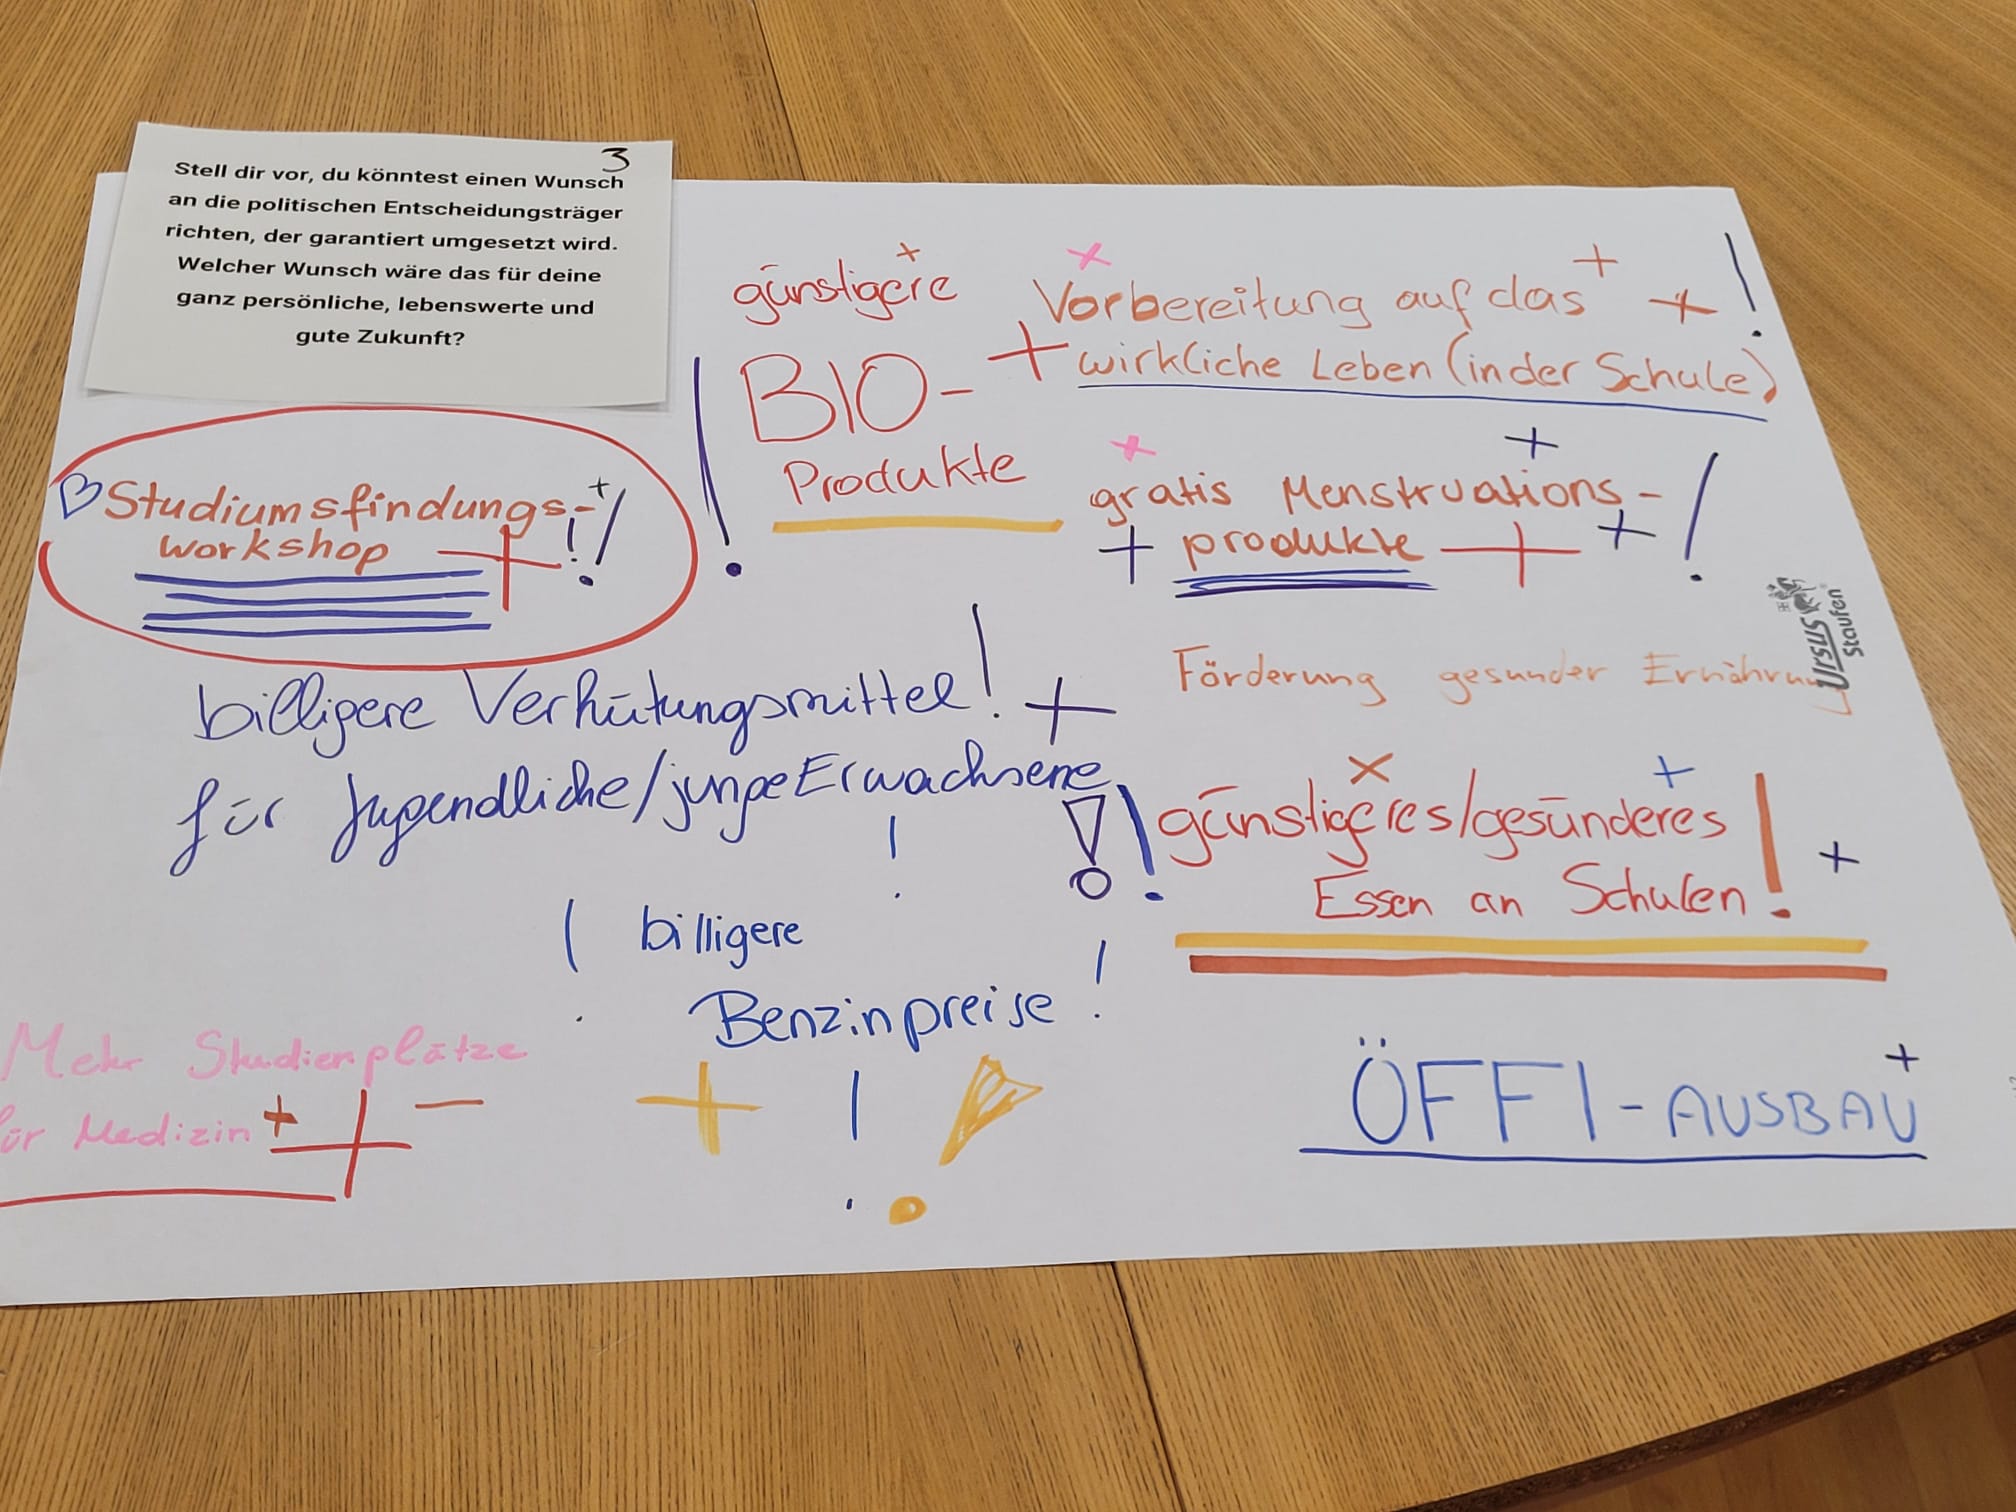 3
Stell dir vor, du könntest einen Wunsch
an die politischen Entscheidungsträger
richten, der garantiert umgesetzt wird.
Welcher Wunsch wäre das für deine
ganz persönliche, lebenswerte und
gute Zukunft?
günstigere +
BIO-
Produkte !
+ Vorbereitung auf das + + !
+ wirkliche Leben (in der Schule)
Studiumsfindungs- + ! !
workshop +
+ gratis Menstruations- + !
+ produkte + +
Förderung gesunder Ernährung
Ursus
Staufen
billigere Verhütungsmittel! +
für Jugendliche/junge Erwachsene ! ! !
x günstigeres/gesünderes + ! +
Essen an Schulen
! billigere
Benzinpreise !
+ ! !
Mehr Studienplätze
für Medizin + + -
ÖFFI-AUSBAU +